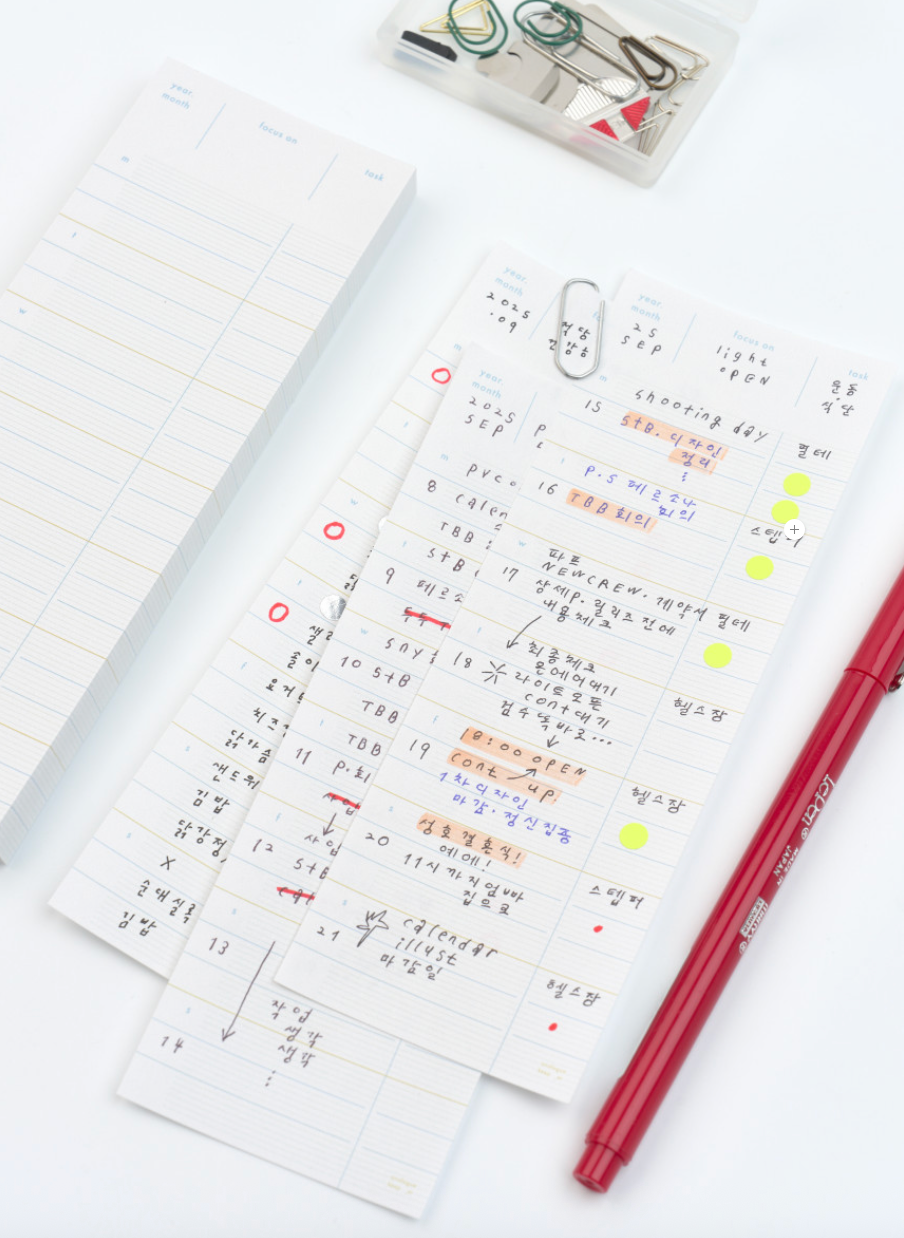 year.
month
focus on
task
m
t
w
year.
month
2025
.09
적당
m
t
w
t
f
s
s
술이
요거트
치즈
닭가슴
샌드위
김밥
닭강정
X
순대실록
김밥
year.
month
2025
SEP
m
8
PVC
Calen
TBB
t
stB
9
페르소
w
SNY
10
StB
TBB
t
TBB
11
P.회
f
사업
12
StB
s
13
작업
생각
생각
⋮
s
14
year.
month
25
SEP
focus on
light
OPEN
task
운동
식단
m
15
shooting day
StB. 디자인
정리
⋮
필테
t
16
P.S 페르소나
회의
TBB 회의
스텝퍼
w
17
파프
NEWCREW. 계약서
상세P. 릴리즈 전에
내용체크
필테
t
18
최종체크
문에어대기
라이트오픈
cont대기
검수 똑바로...
헬스장
f
19
18:00 OPEN
cont up!
1차 디자인
마감·정신집중
헬스장
s
20
성호 결혼식!
예에!
11시까지 엄빠
집으로
스텝퍼
s
21
calendar
illust
마감일
헬스장
JAPAN